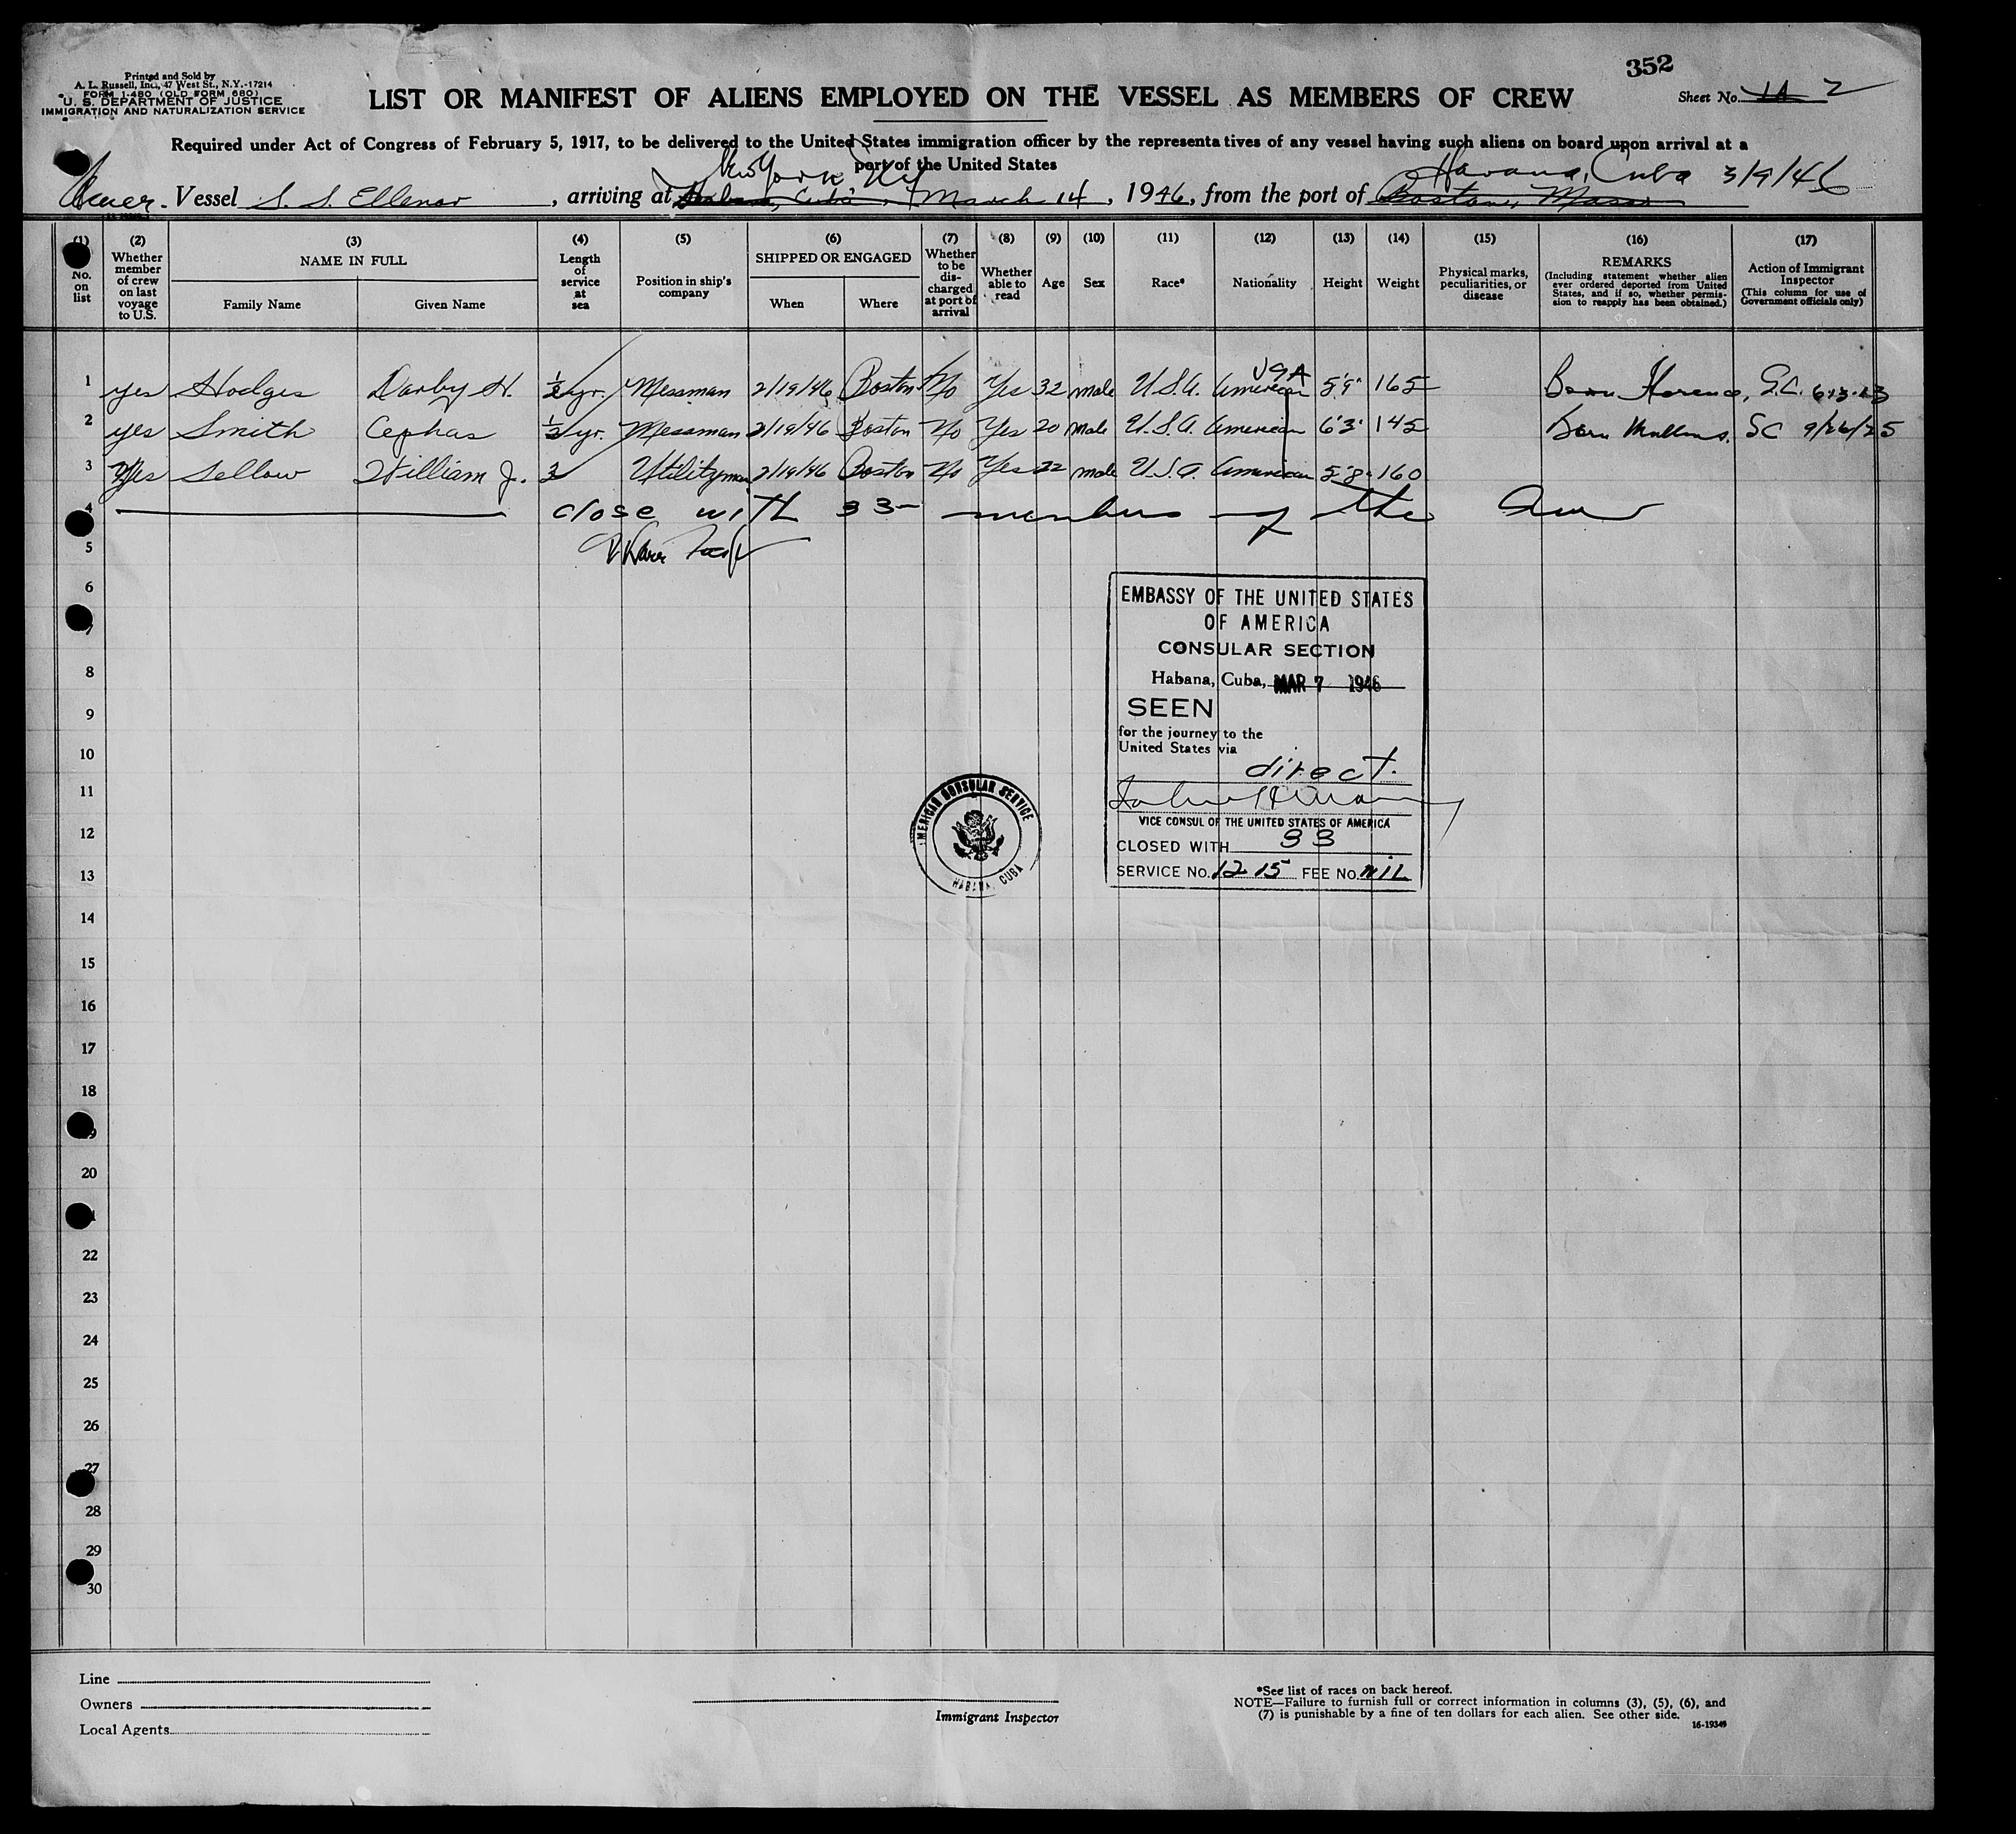 352
Printed and Sold by
A. L. Russell, Inc., 47 West St., N.Y.-17214
FORM I-480 (OLD FORM 680)
U. S. DEPARTMENT OF JUSTICE
IMMIGRATION AND NATURALIZATION SERVICE
LIST OR MANIFEST OF ALIENS EMPLOYED ON THE VESSEL AS MEMBERS OF CREW
Sheet No. 1A 2
Required under Act of Congress of February 5, 1917, to be delivered to the United States immigration officer by the representatives of any vessel having such aliens on board upon arrival at a
port of the United States
New York NY Havana, Cuba 3/9/46
Amer. Vessel S. S. Ellenor, arriving at Habana, Cuba, March 14, 1946, from the port of Boston, Mass
(1) No. on list
(2) Whether member of crew on last voyage to U.S.
(3) NAME IN FULL
Family Name Given Name
(4) Length of service at sea
(5) Position in ship's company
(6) SHIPPED OR ENGAGED
When Where
(7) Whether to be discharged at port of arrival
(8) Whether able to read
(9) Age
(10) Sex
(11) Race*
(12) Nationality
(13) Height
(14) Weight
(15) Physical marks, peculiarities, or disease
(16) REMARKS
(Including statement whether alien ever ordered deported from United States, and if so, whether permission to reapply has been obtained.)
(17) Action of Immigrant Inspector
(This column for use of Government officials only)
USA
1 yes Hodges Darby H. ½ yr. Messman 2/19/46 Boston No Yes 32 male U.S.A. American 5'9" 165 Born Florence, S.C. 6-13-13
2 yes Smith Cephas ½ yr. Messman 2/19/46 Boston No Yes 20 male U.S.A. American 6'3" 145 Born Mullins, SC 9/26/25
3 Yes Sellow William J. 2 Utilityman 2/19/46 Boston No Yes 22 male U.S.A. American 5'8" 160
4 close with 33 members of the crew
5
6
EMBASSY OF THE UNITED STATES
OF AMERICA
CONSULAR SECTION
Habana, Cuba, MAR 7 1946
SEEN
for the journey to the
United States via
direct.
VICE CONSUL OF THE UNITED STATES OF AMERICA
CLOSED WITH 33
SERVICE No. 1215 FEE No. nil
AMERICAN CONSULAR SERVICE
HABANA, CUBA
7
8
9
10
11
12
13
14
15
16
17
18
20
22
23
24
25
26
27
28
29
30
Line
Owners
Local Agents
Immigrant Inspector
*See list of races on back hereof.
NOTE—Failure to furnish full or correct information in columns (3), (5), (6), and
(7) is punishable by a fine of ten dollars for each alien. See other side.
16-19349